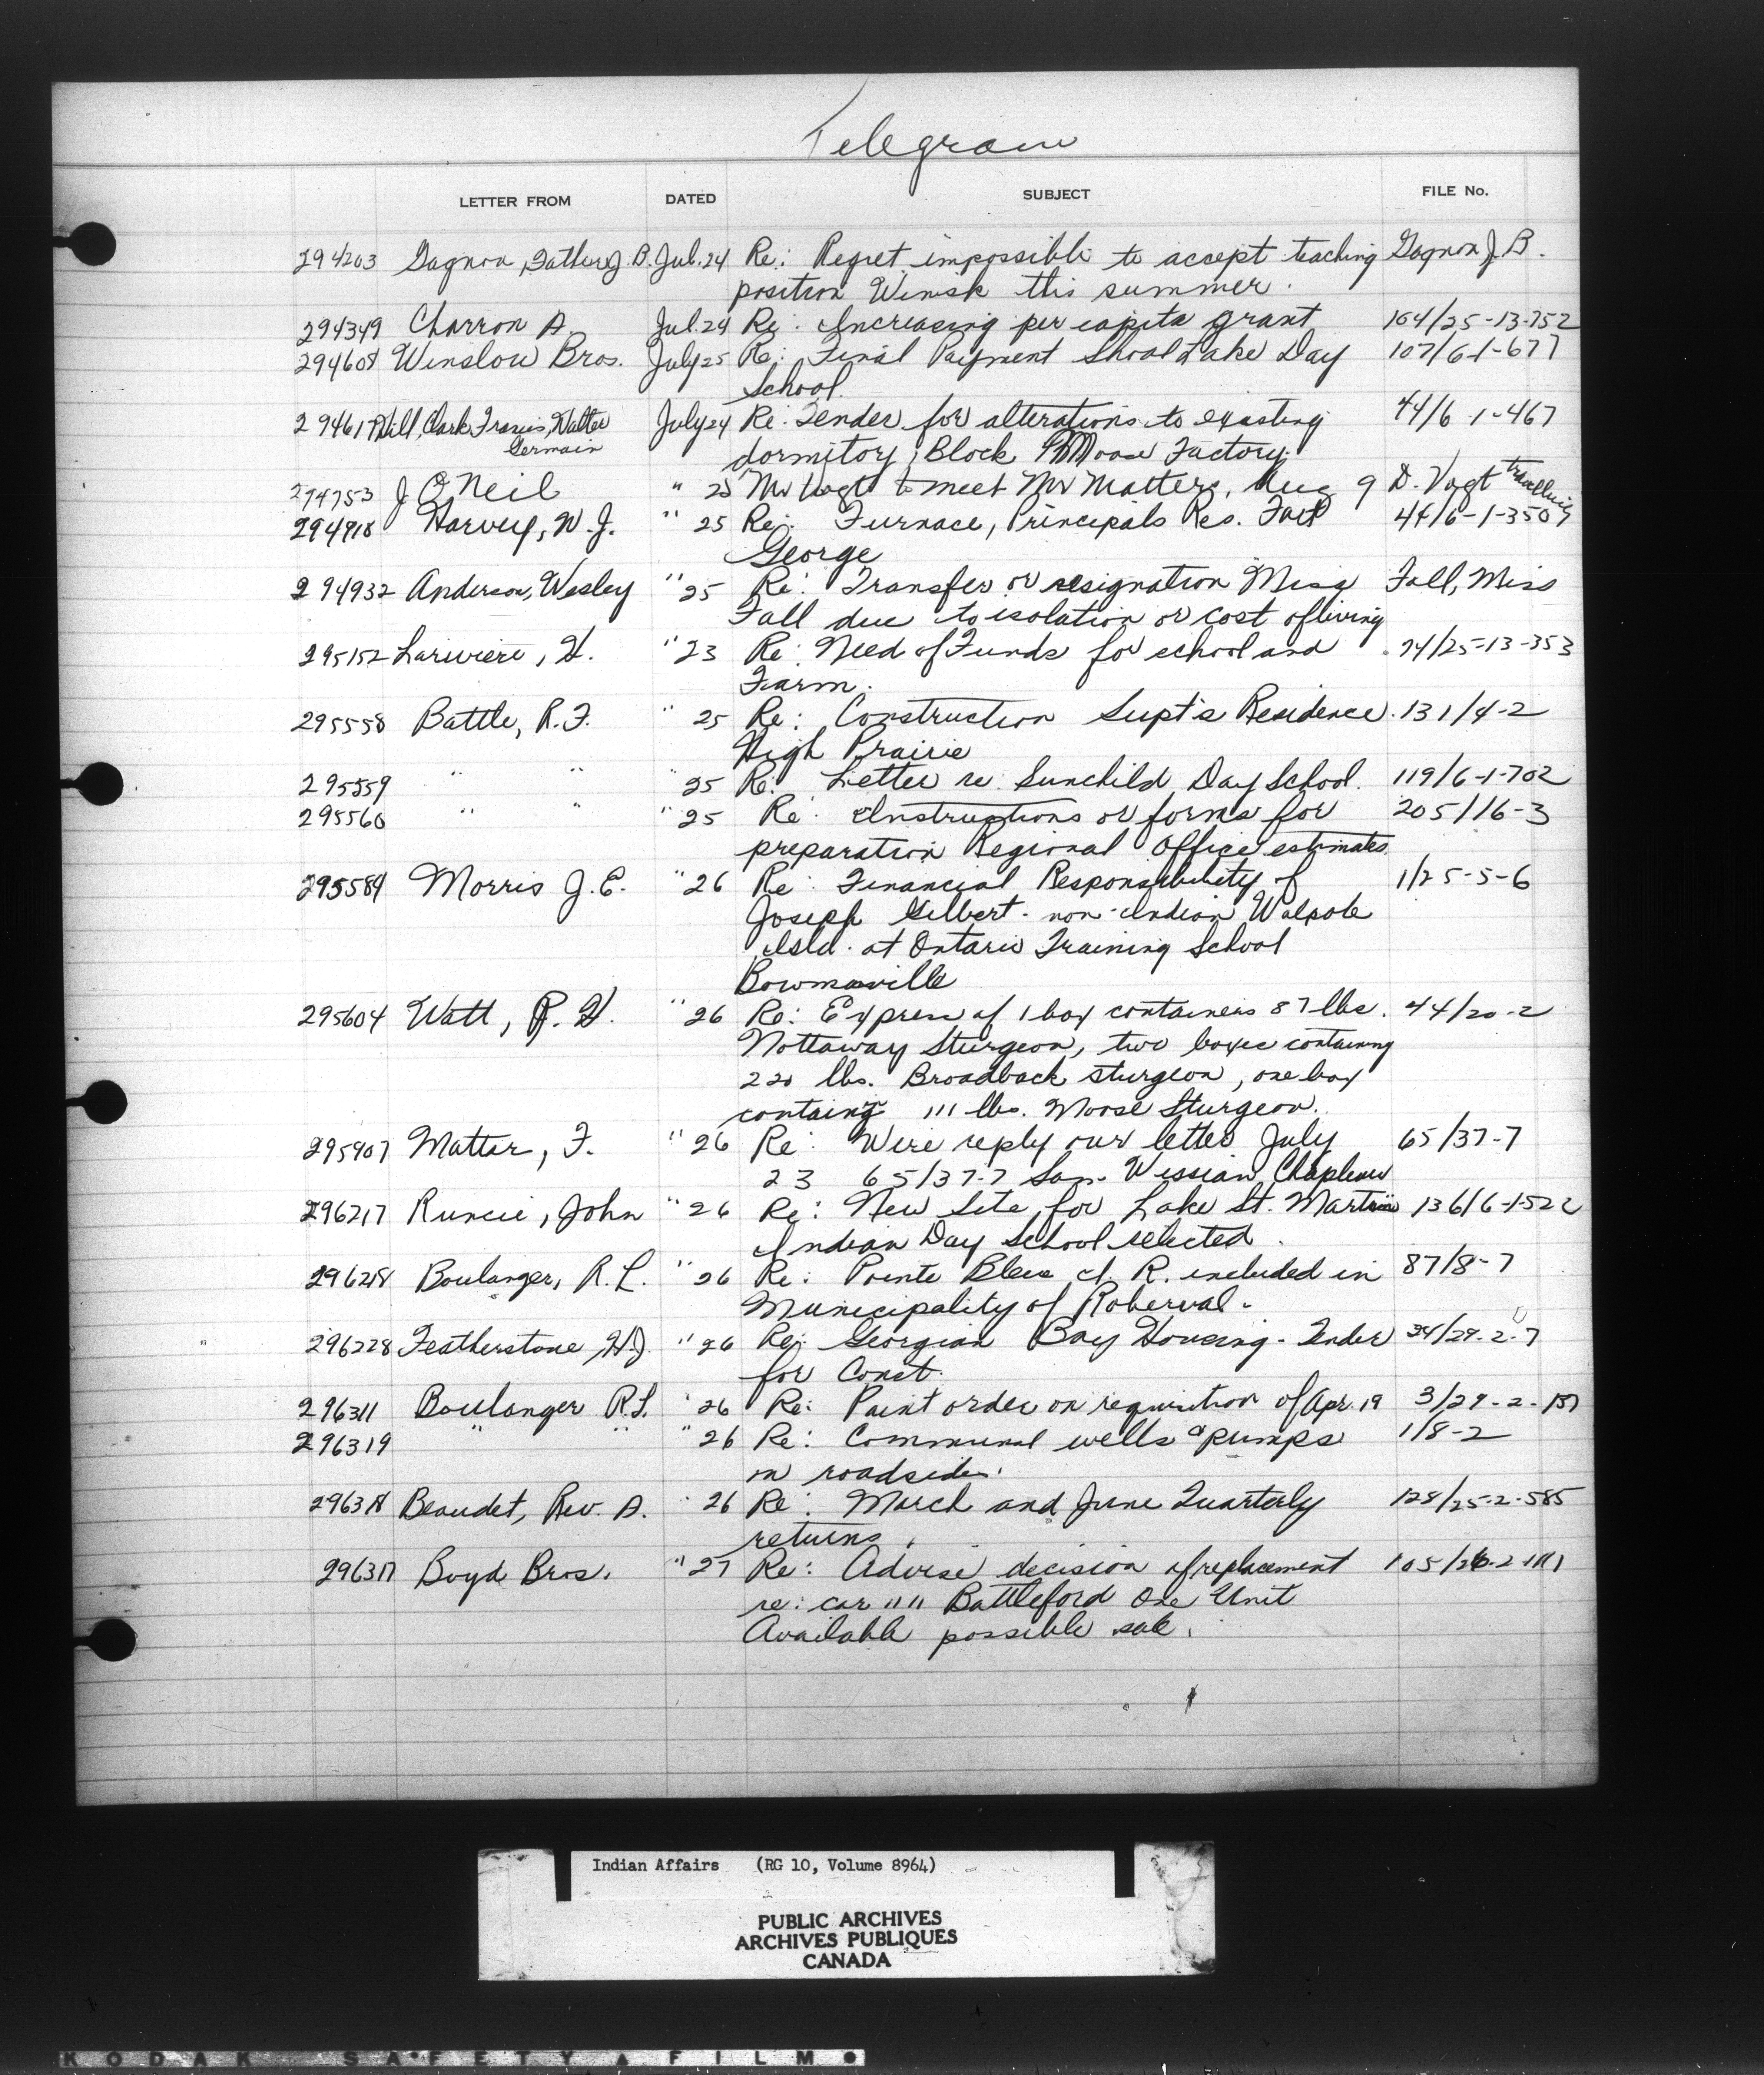 Telegram
LETTER FROM DATED SUBJECT FILE No.
294203 Gagnon, Father J. B. Jul. 24 Re: Regret impossible to accept teaching Gagnon J. B.
position Winisk this summer.
294349 Charron A. Jul. 24 Re: Increasing per capita grant 164/25-13-752
294608 Winslow Bros. July 25 Re: Final Payment Shoal Lake Day 107/6-1-677
School.
29461 Hill, Clark, Francis, Walter July 24 Re: Tender for alterations to existing 44/6-1-467
Germain
dormitory, Block Moose Factory.
294753 J O'Neil " 25 Mr Vogt to meet Mr Matters, Aug 9 D. Vogt travelling
294918 Harvey, W. J. " 25 Re: Furnace, Principals Res. Fort 44/6-1-350
George
294932 Anderson, Wesley " 25 Re: Transfer or resignation Miss Fall, Miss
Fall due to isolation or cost of living
295152 Lariviere, H. " 23 Re: Need of Funds for school and 74/25-13-353
Farm.
295558 Battle, R. F. " 25 Re: Construction Supt's Residence. 131/4-2
High Prairie
295559 " " " 25 Re: Letter re Sunchild Day School. 119/6-1-702
295560 " " " 25 Re: Instructions or forms for 205/16-3
preparation Regional Office estimates.
295584 Morris J. E. " 26 Re: Financial Responsibility of 1/25-5-6
Joseph Gilbert - non-Indian Walpole
Isld. at Ontario Training School
Bowmanville
295604 Watt, R. H. " 26 Re: Express of 1 box containers 87 lbs. 44/20-2
Nottaway Sturgeon, two boxes containing
220 lbs. Broadback sturgeon, one box
containing 111 lbs. Moose Sturgeon.
295907 Matters, F. " 26 Re: Wire reply our letter July 65/37-7
23 65/37-7 Sam Wesian Chapleau
296217 Runcie, John " 26 Re: New Site for Lake St. Martin 136/6-1-522
Indian Day School selected.
296218 Boulanger, R. L. " 26 Re: Pointe Bleue I. R. included in 87/8-7
Municipality of Roberval.
296228 Featherstone, H.J. " 26 Re: Georgian Bay Housing - Tender 34/29-2-7
for Const.
296311 Boulanger R.L. " 26 Re: Paint order on requisition of Apr. 19 3/29-2-
296319 " " " 26 Re: Communal wells & pumps 1/8-2
on roadsides.
Beaudet, Rev. A. " 26 Re: March and June Quarterly 128/25-2-585
returns.
Boyd Bros. " 27 Re: Advise decision of replacement
re: car "" Battleford One Unit
Available possible sale.
Indian Affairs (RG 10, Volume 8964)
PUBLIC ARCHIVES
ARCHIVES PUBLIQUES
CANADA
KODAK SAFETY FILM